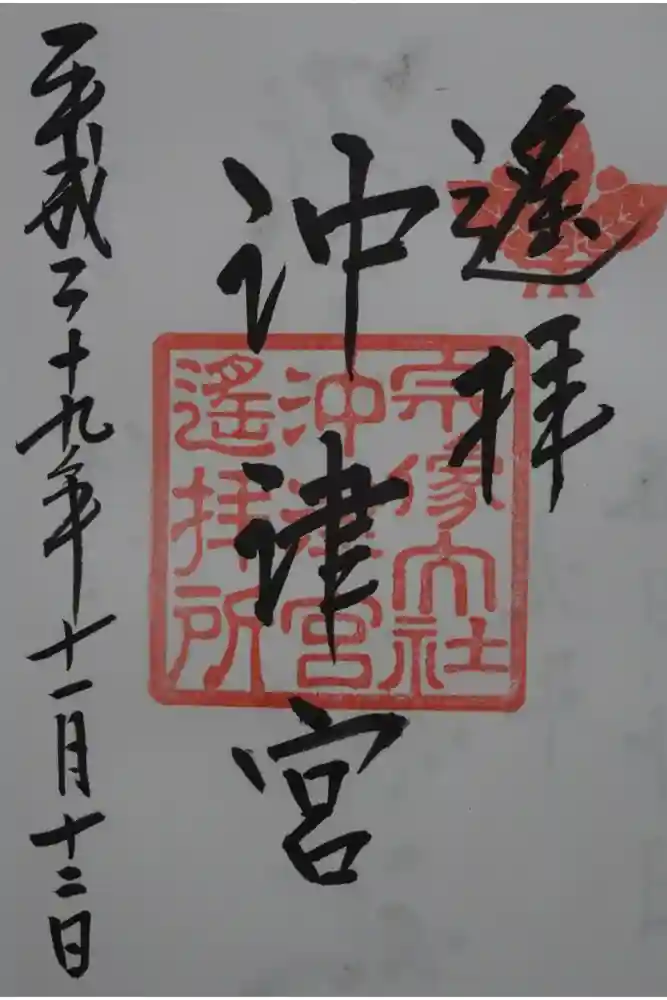 遙拝
沖津宮
平成二十九年十一月十二日
宗像大社
沖津宮
遙拝所